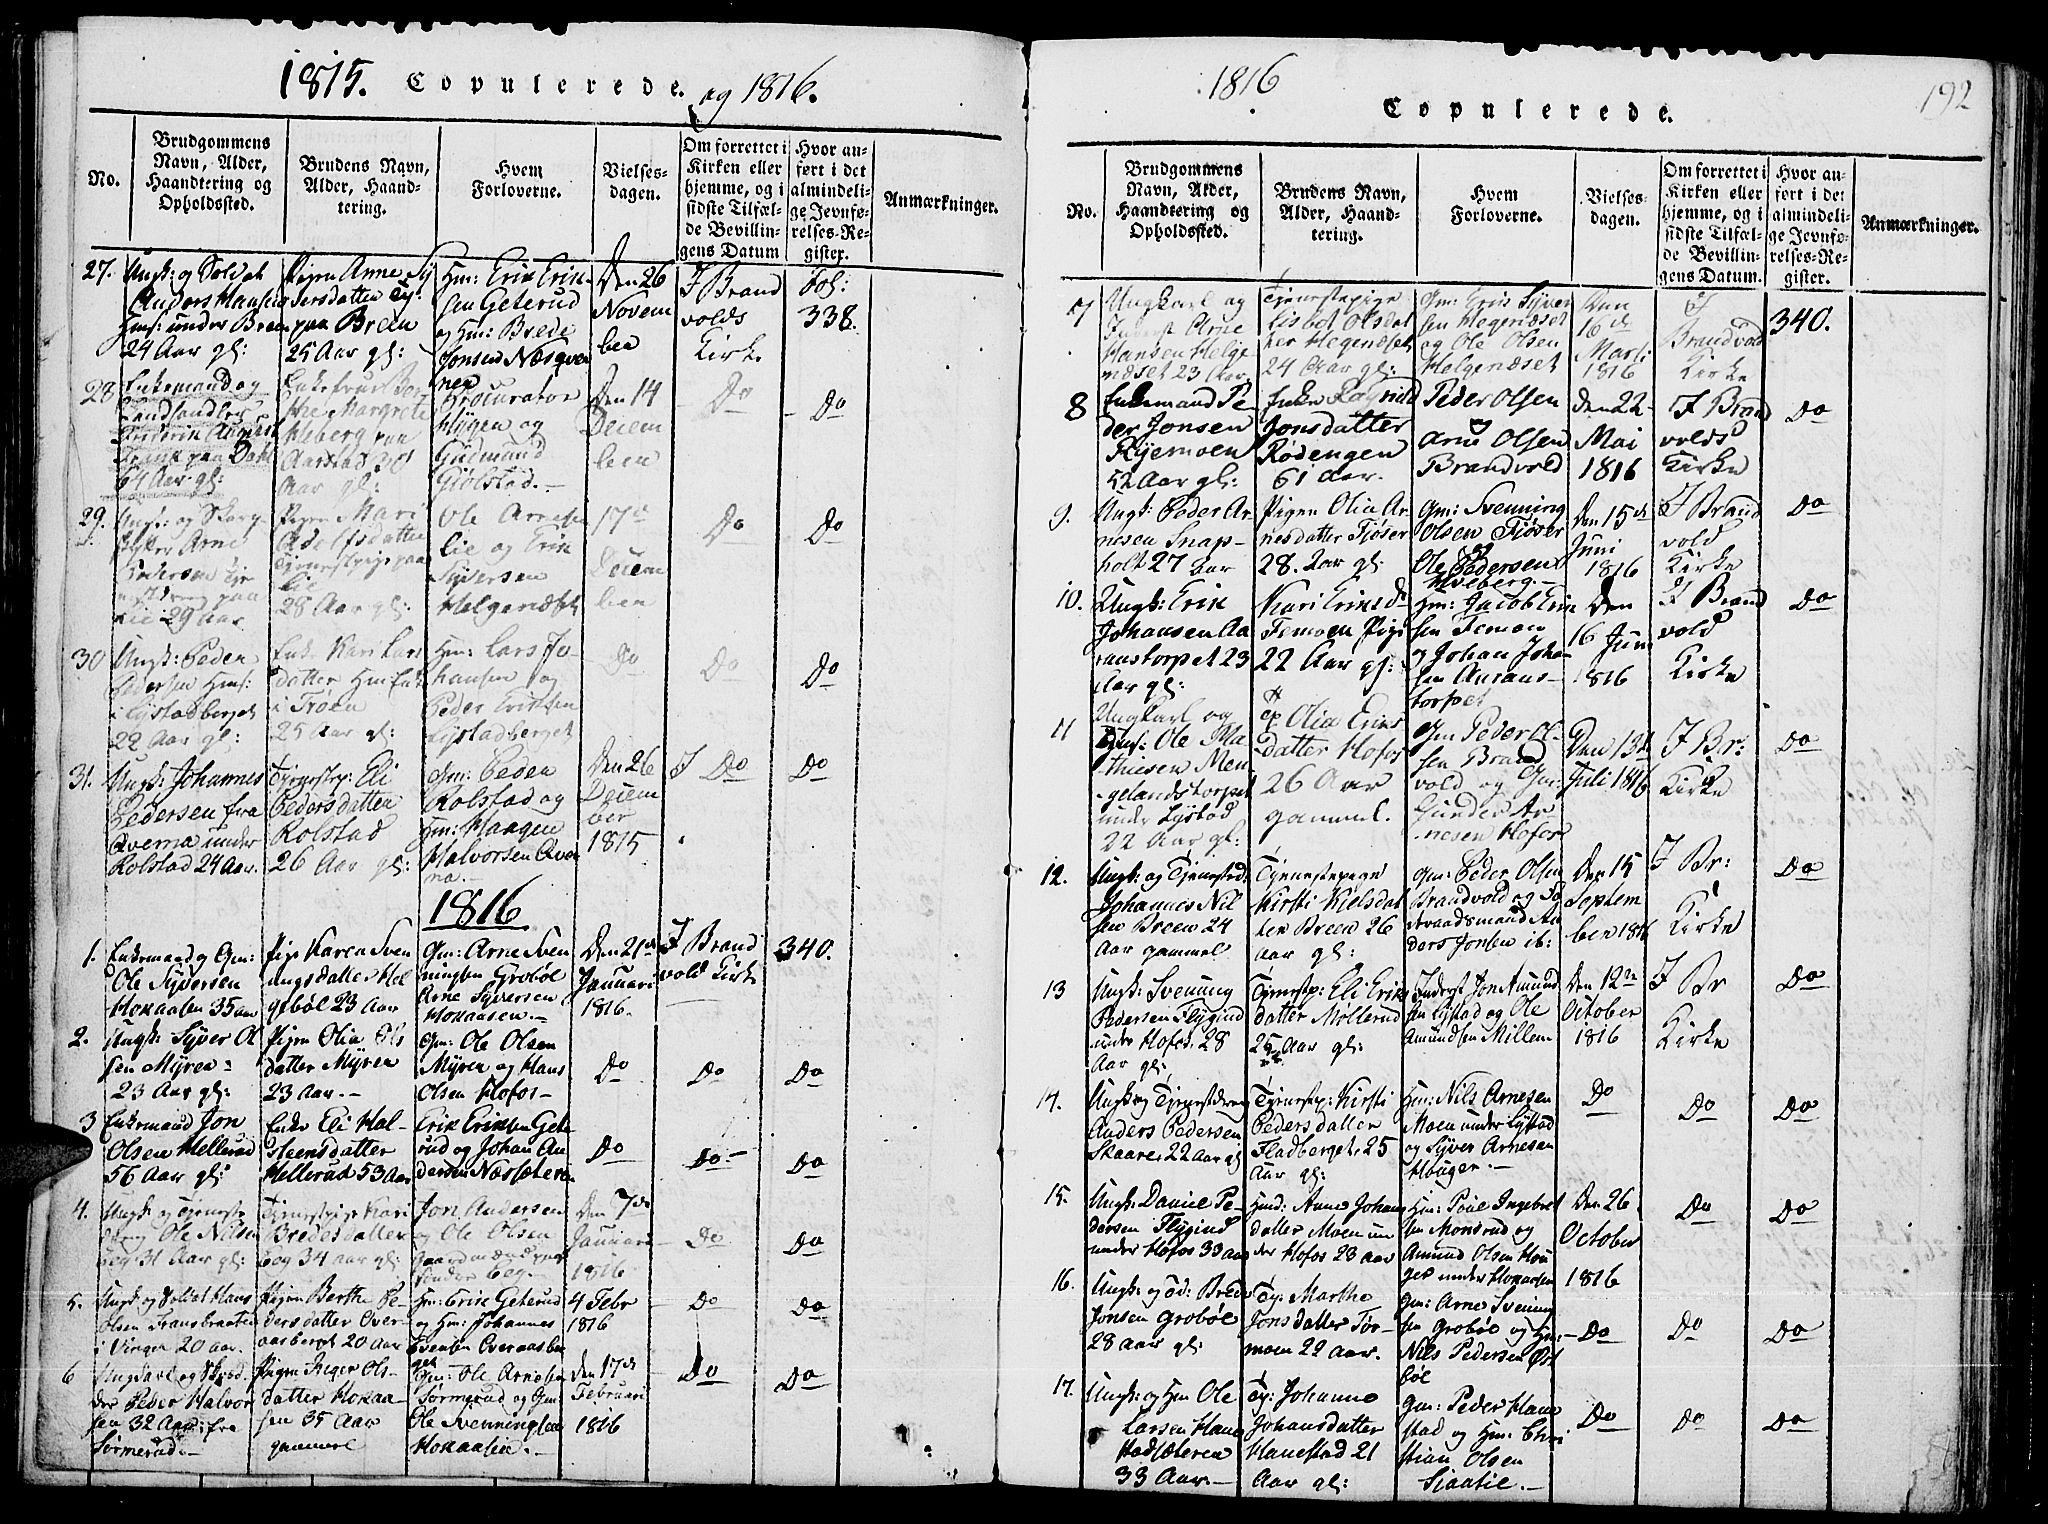 1815. Copulerede. og 1816.
No.
Brudgommens
Navn, Alder,
Haandtering og
Opholdssted.
Brudens Navn,
Alder, Haand-
tering.
Hvem
Forloverne.
Vielses-
dagen.
Om forrettet i
Kirken eller
hjemme, og i
sidste Tilfæl-
de Bevillin-
gens Datum
Hvor an-
ført i det
almindeli-
ge Jevnfø-
relses-Re-
gister.
Anmærkninger.
27.
Ungk: og Soldat
Anders Hansen
Hms: under Breen
24 Aar gl:
Pigen Anne Sy
versdatter Ty:
paa Breen
25 Aar gl:
Hm: Erik Erik
sen Geterud
og Hm: Brede
Jonsen Næsqver
nen
Den 26
Novem
ber
I Brand
volds
Kirke
Fol:
338.
28
Enkemand og
Landhandler
Friderik August
Frank paa Dahl
64 Aar gl:
Enkefrue Do
the Margrete
Heberg paa
Aarstad 30
Aar gl:
Procurator
Hÿgen og
Gudmund
Giølstad.-
Den 14
Decem
ber
Do
Do
29.
Arne
Pedersen Tje
nestdreng paa
Lie 29 Aar
Pigen Mari
Adolfsdatter
Tjenestpige paa
Lie
28 Aar gl:
Ole Arnesen
Lie og Erik
Syversen
Helgenæset
17de
Decem
ber
Do
Do
30
Ungk: Peder
Pedersen Hms:
i Lystadberget
22 Aar gl:
Enke Kari Lars
datter Hm Enke
i Trøen
25 Aar gl:
Hm: Lars Jo
hansen og
Peder Eriksen
Lystadberget
Do
Do
Do
31.
Ungk: Johannes
Pedersen fra
Qverna under
Rolstad 24 Aar.
Tjenestep: Eli
Pedersdatter
Rolstad
26 Aar gl:
Gm: Peder
Rolstad og
Hm: Haagen
Halvorsen Qver
na.-
Den 26
Decem
ber
1815
I Do
Do
1816
1.
Enkemand og Gm:
Ole Syversen
Hokaasen 35 aar
Pige Karen Sven
ningsdatter Hel
gebøl 23 Aar
Gm: Arne Sven
ningsen Grobøl
Arne Syversen
Hokaasen.-
Den 21de
Januari
1816.
I Brand
vold Kirke
340.
2.
Ungk: Syver Ol
sen Myren
23 Aar gl:
Pigen Olia Ols
datter Myren
23 Aar.-
Gm: Ole Olsen
Myren og Hans
Olsen Hofos-
Do
Do
Do
3
Enkemand Jon
Olsen Hellerud
56 Aar gl:
Enke Eli Hal-
steensdatter
Hellerud 53 Aar
Erik Eriksen Gete
rud og Johan An
dersen Næssæteren
Do
Do-
Do
4.
Ungk: og Tjeneste
dreng Ole Nilsen
Beg 31 Aar gl:
Tjenestpige Kari
Bredesdatter
Beg 34 aar gl:
Jon Andersen
og Ole Olsen
Gaardmænd paa
Søndre Beg.-
Den 7de
Januari
1816
Do
Do
5.
Ungk: og Soldat Hans
Olsen Fransbraaten
i Vinger 20 aar.
Pigen Berthe Pe-
dersdatter Over-
aasberget 20 aar
Hm: Erik Geterud
og Hm: Johannes
Svensen Overaasber
get
4 Febr
1816
Do
Do
6
Ungkarl og Skræd
der Peder Halvor
sen 32 Aar: fra
Sørmerud.-
Pigen Inger Ols-
datter Hokaa-
sen 35 Aar
gammel
Gm: Ole Arnesen
Sørmerud og Gm
Ole Svenningsen
Hokaasen.-
Den 17de
Februari
1816
Do
Do
1816
192
Copulerede.
No.
Brudgommens
Navn, Alder,
Haandtering og
Opholdssted.
Brudens Navn,
Alder, Haand-
tering.
Hvem
Forloverne.
Vielses-
dagen.
Om forrettet i
Kirken eller
hjemme, og i
sidste Tilfæl-
de Bevillin-
gens Datum.
Hvor an-
ført i det
almindeli-
ge Jevnfø-
relses-Re-
gister.
Anmærkninger.
7
Ungkarl og
Inderst Arne
Hansen Helge
næset 23 Aar.
Tjenestepige
Lisbet Olsdat
ter Hegenæset
24 Aar gl:
Gm: Erik Syver
sen Hegenæset
og Ole Olsen
Helgenæset
Den
16de
Marti
1816
I
Brandvold
Kirke
340.
8
Enkemand Pe-
der Jonsen
Ryemoen
52 Aar gl:
Enke Ragnild
Jonsdatter
Rødengen
61 Aar.
Peder Olsen
og
Arne Olsen
Brandvold
Den 22
Mai
1816
I Brand
volds
Kirke
Do
9.
Ungk: Peder Ar
nesen Snap-
holt 27 Aar
Pigen Olia Ar
nesdatter Tjøser
28. Aar gl:
Gm: Svenning
Olsen Tjøser
og
Ole Pedersen
Hveberg.-
Den 15de
Juni
1816
I Brand
vold
Kirke
Do
10.
Ungk: Erik
Johansen Aa
ranstorpet 23
Aar gl:
Kari Eriksd:
Femoen Pige
22 Aar gl:
Hm: Jacob Erik
sen Femoen
og Johan Joha-
sen Aarans-
torpet
Den
16 Juni
1816
I Brand
vold
Kirke
Do
11
Ungkarl og
Hms: Ole Ma
thiesen Men
gelandstorpet
under Lystad
22 Aar gl:
Tp Olia Eriks
datter Hofos
26 Aar
gammel.
Gm Peder Ol-
sen Brand
vold og Gm:
Gunder Ar-
nesen Hofos
Den 13de
Juli 1816
I Br:
Kirke
Do
12.
Ungk: og Tjenested:
Johannes Nil
sen Breen 24
Aar gammel
Tjenestepige
Kirsti Kielsdat
ter Breen 26
aar gl:
Gm: Peder Olsen
Brandvold og So
raadsmand An
ders Jonsen ib:
Den 15
Septem
ber 1816
I Br:
Kirke
Do
13
Ungk: Svenning
Pedersen Flygind
under Hofos. 28
Aar gl:
Tjenestp: Eli Eriks
datter Møllerud
25 Aar gl:
Inderst Jon Amund
sen Lystad og Ole
Amundsen Millem
Den 12te
October
1816
I Br
Kirke
Do
14.
Ungk og Tjenestdreng
Anders Pedersen
Skaare. 22 aar gl
Tjenestp: Kirsti
Pedersdatter
Fladberget. 25
Aar gl:
Hm: Nils Arnesen
Moen under Lystad
og Syver Arnesen
Houger.-
Do
Do
Do
15.
Ungk: Daniel Pe-
dersen Flygind
under Hofos 33 aar
Hmd: Anne Johans
datter Moen un
der Hofos 28 aar
Hm: Poul Ingebret
sen Monsrud og
Amund Olsen Hou
ger under Hokaasen
Den 26
October
1816
Do
Do
16.
Ungk: og Sod: Brede
Jonsen Grobøl
28 aar gl:
Ty: Marthe
Jonsdatter Tør-
moen 22 aar.
Gm: Arne Svening
sen Grobøl og Hm:
Nils Pedersen Øst
bøl
Do
Do
Do
17.
Ungk: og Hm Ole
Larsen Hane
stadsæteren
33 Aar.-
Ty: Johanne
Johansdatter
Hanestad 21
Aar gl:
Gm: Peder Hane
stad og Hm: Chri
stian Olsen
Sjaatie.-
Do
Do
Do